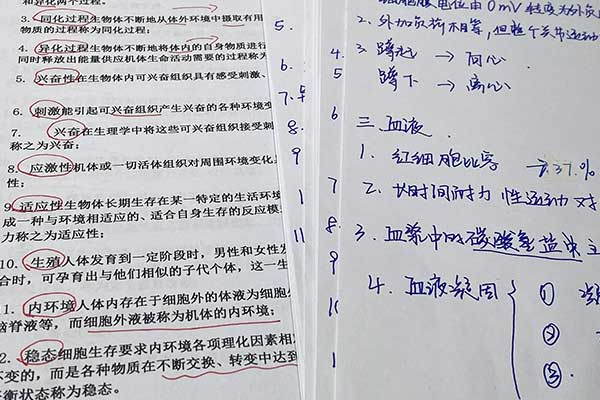 和异化两个过程。
3. 同化过程生物体不断地从体外环境中摄取有用
物质的过程称为同化过程；
4. 异化过程生物体不断地将体内的自身物质进行
同时释放出能量供应机体生命活动需要的过程称为
5. 兴奋性在生物体内可兴奋组织具有感受刺激、
6. 刺激能引起可兴奋组织产生兴奋的各种环境变
7. 兴奋在生理学中将这些可兴奋组织接受刺
称之为兴奋；
8. 应激性机体或一切活体组织对周围环境变化
性；
9. 适应性生物体长期生存在某一特定的生活环境
成一种与环境相适应的、适合自身生存的反应模
力称之为适应性；
10. 生殖人体发育到一定阶段时，男性和女性发
合时，可孕育出与他们相似的子代个体，这一生
1. 内环境人体内存在于细胞外的体液为细胞外
脑脊液等，而细胞外液被称为机体的内环境；
2. 稳态细胞生存要求内环境各项理化因素相
不变的，而是各种物质在不断交换、转变中达到
衡状态称为稳态。
5.
6.
7.
8.
9
1
11
4.
5
6
7
8.
9
10
1
电位由0mV转变为外负
2. 外加负荷不易等，但整个关节运动
3 蹲起 → 向心
蹲下 → 离心
三. 血液.
1. 红细胞比容 → 37.%
2. 长时间耐力性运动对
3. 血浆中的碳酸氢盐
4. 血液凝固 ①
②
③